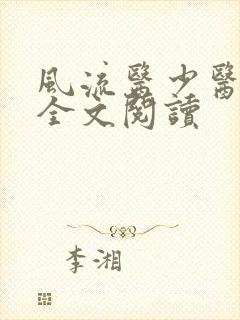 風流醫少醫
全文閱讀
李湘